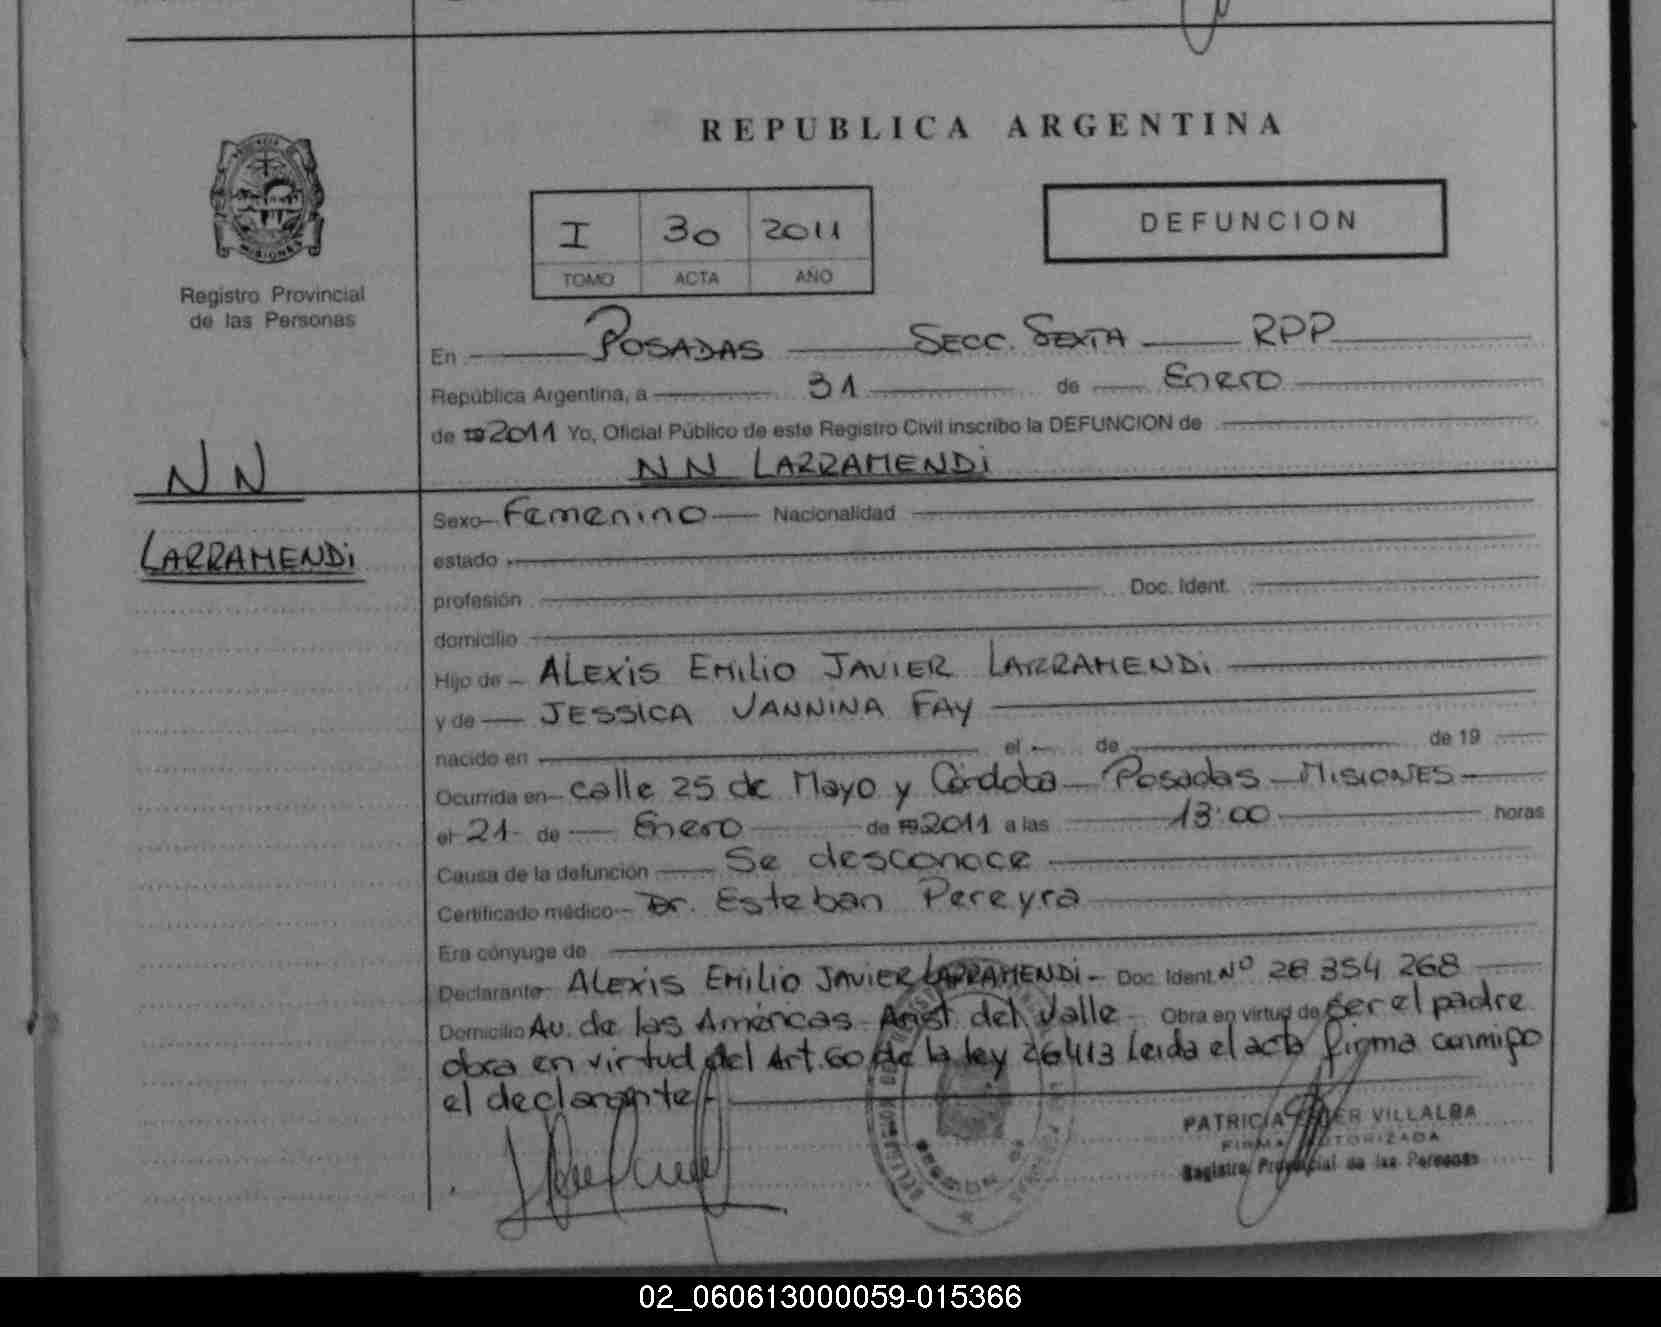 REPUBLICA ARGENTINA
I 30 2011
TOMO ACTA AÑO
DEFUNCION
MISIONES
Registro Provincial
de las Personas
En POSADAS SECC. SEXTA RPP
República Argentina, a 31 de Enero
de 19 2011 Yo, Oficial Público de este Registro Civil inscribo la DEFUNCION de
NN LARRAMENDi
NN
LARRAMENDi
Sexo Femenino Nacionalidad
estado
profesión Doc. Ident.
domicilio
Hijo de ALEXIS EMILIO JAVIER LARRAMENDi
y de JESSICA VANNINA FAY
nacido en el de de 19
Ocurrida en calle 25 de Mayo y Córdoba - Posadas - MISIONES
el 21 de Enero de 19 2011 a las 13:00 horas
Causa de la defunción Se desconoce
Certificado médico Dr. Esteban Pereyra
Era cónyuge de
Declarante ALEXIS EMILIO JAVIER LARRAMENDi - Doc. Ident. Nº 28 354 268
Domicilio Av. de las Américas - Arist. del Valle - Obra en virtud de ser el padre
obra en virtud del Art. 60 de la ley 26413 Leida el acta firma conmigo
el declarante
PATRICIA VILLALBA
FIRMA AUTORIZADA
Registro Provincial de las Personas
02_060613000059-015366